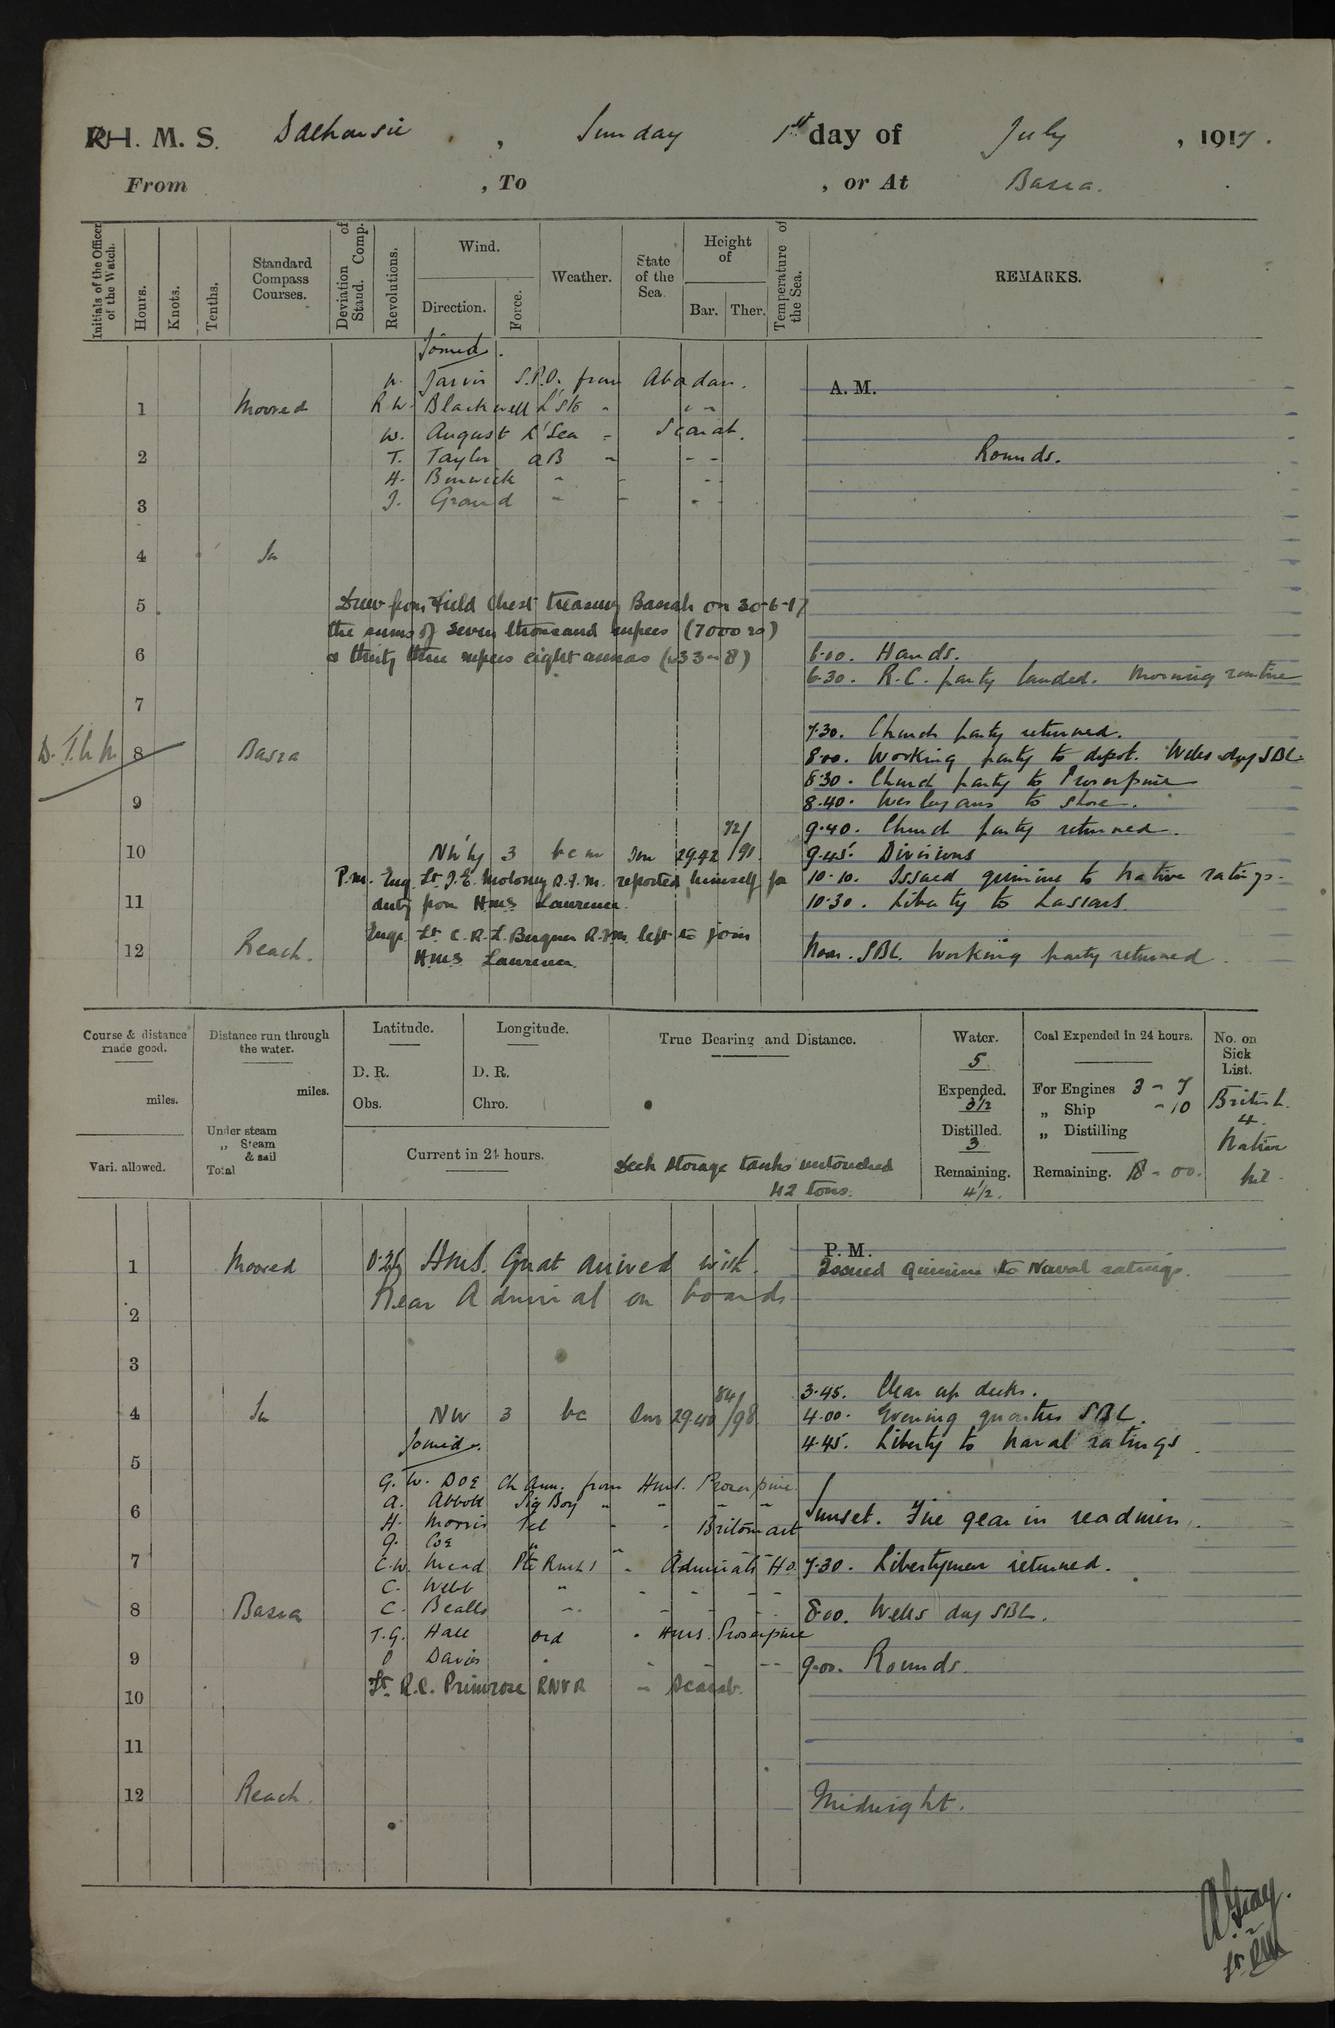 R.H.M.S. Dalhousie, Sunday 1st day of July, 1917.
From , To , or At Basra.
Initials of the Officer of the Watch.
Hours.
Knots.
Tenths.
Standard Compass Courses.
Deviation of Stand. Comp.
Revolutions.
Wind.
Direction.
Force.
Weather.
State of the Sea.
Height of
Bar.
Ther.
Temperature of the Sea.
REMARKS.
Joined.
W. Jarvis S.P.O. from Abadan.
A. M.
1 Moored R W. Blackwell L'Sto " " "
W. August L'Sea " Scarab.
2 T. Taylor AB " " " Rounds.
H. " " "
3 J. Ground " " "
4 In
5 Drew from Field Chest treasury Basrah on 30-6-17
the sums of Seven thousand rupees (7000 rs)
6 & thirty three rupees eight annas (33-8) 6.00. Hands.
6.30. R.C. party landed. Morning routine
7
7.30. Church party returned.
D. T. h h. 8 Basra 8.00. Working party to depot. Wells day SBL.
8.30. Church party to Proserpine
9 8.40. Wesleyans to shore.
9.40. Church party returned.
10 NW'ly 3 bcm Sm 29.42 72/91 9.45. Divisions
P.m. Eng. Lt J. E. Moloney R.I.M. reported himself for 10.10. Issued quinine to Native ratings.
11 duty from HMS Lawrence. 10.30. Liberty to Lascars.
Engr Lt C. R. L. Bergner R.I.M. left to join
12 Reach. HMS Lawrence. Noon. SBL. Working party returned.
Course & distance made good.
miles.
Vari. allowed.
Distance run through the water.
miles.
Under steam
„ Steam & sail
Total
Latitude.
D. R.
Obs.
Longitude.
D. R.
Chro.
Current in 24 hours.
True Bearing and Distance.
Deck storage tanks untouched
42 tons.
Water.
5
Expended.
3½
Distilled.
3
Remaining.
4½.
Coal Expended in 24 hours.
For Engines 3 - 7
„ Ship - 10
„ Distilling
Remaining. 18 - 00.
No. on Sick List.
British.
4.
Native
nil.
P. M.
1 Moored 0.26 HMS. Gnat arrived with Issued quinine to Naval ratings.
Rear Admiral on board
2
3
3.45. Clear up decks.
4 In NW 3 bc Sm 29.40 84/98 4.00. Evening quarters SBL.
Joined. 4.45. Liberty to Naval ratings.
5
G. W. DOE Ch Arm. from HMS. Proserpine.
A. Abbott Sig Boy " " " "
6 H. Morris Tel " " Britomart Sunset. Fire gear in readiness.
G. Coe " "
7 C.W. Mead Pte RMLI " Admirals Ho. 7.30. Libertymen returned.
C. Webb " " " " "
8 Basra C. Bealls " " " " 8.00. Wells day SBL.
T.G. Hall ord " HMS. Proserpine
9 Davis " " " 9.00. Rounds.
Lt. R.C. Primrose RNVR " Scarab.
10
11
12 Reach. Midnight.
A Gray.
Lt. RIM